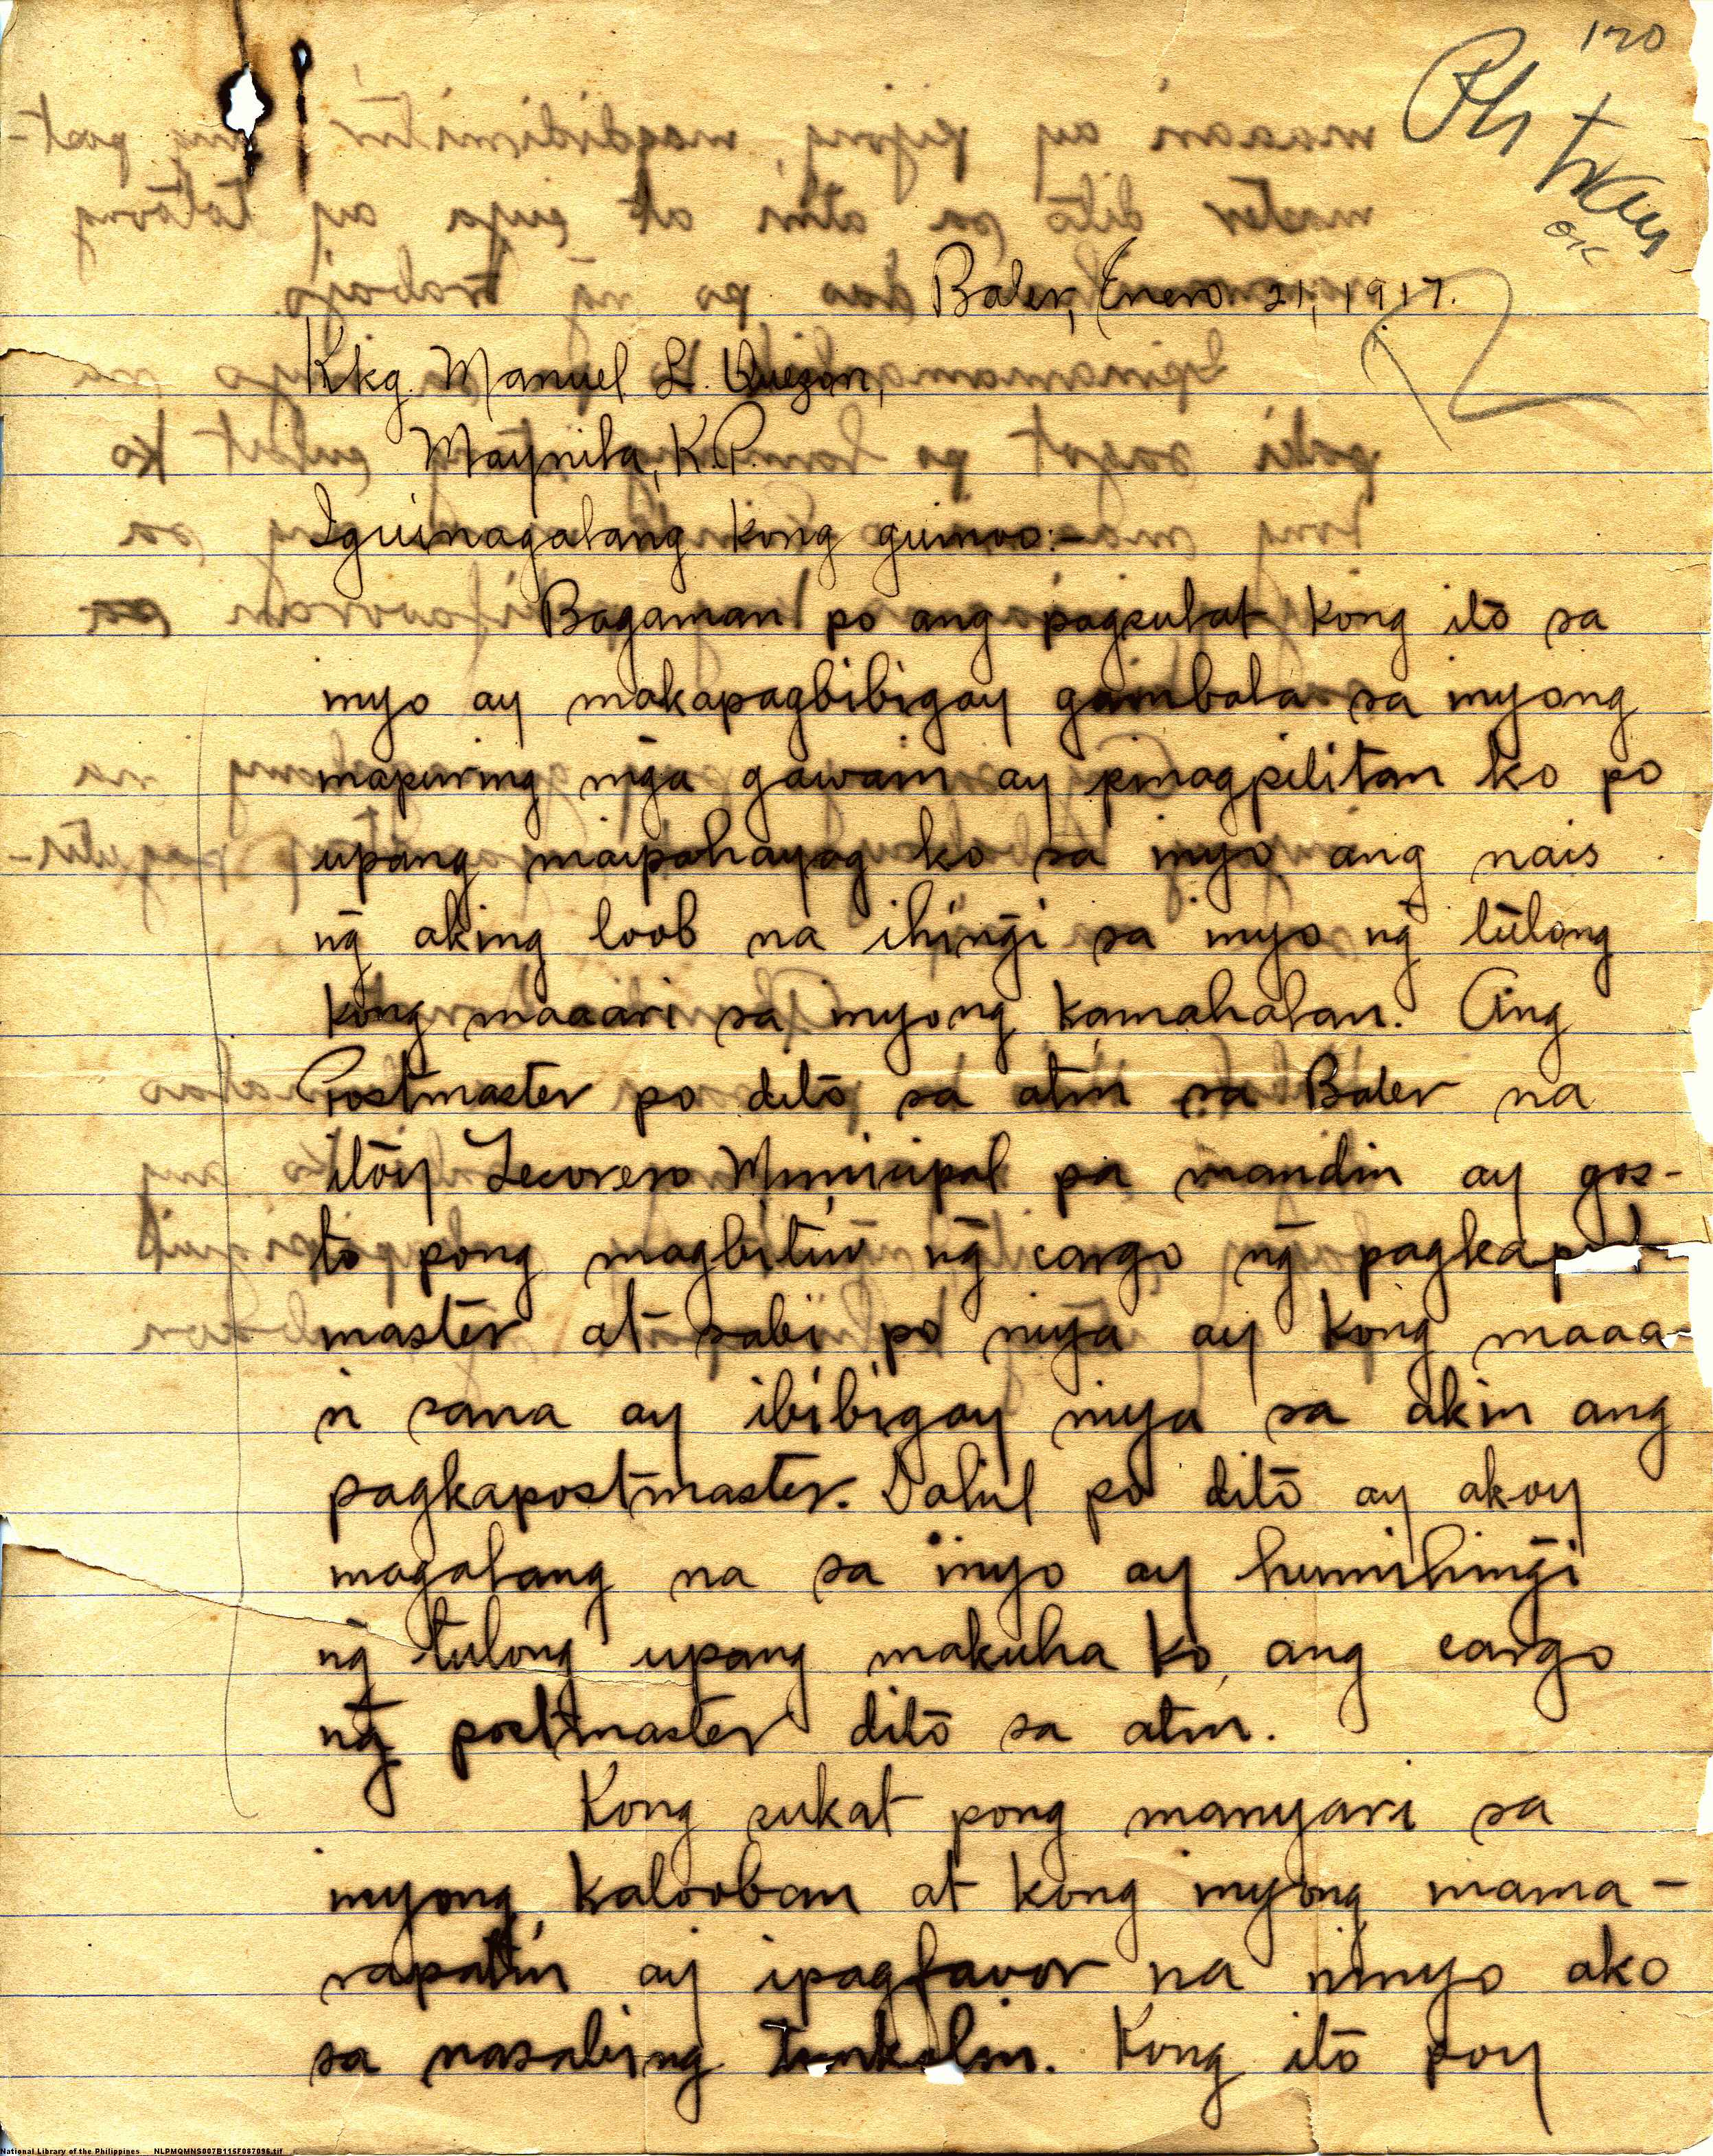 120
OK
Baler, Enero 21, 1917.
Kkg. Manuel L. Quezon,
Maynila, K.P.
Iguinagalang kong guinoo:-
Bagaman po ang pagsulat kong itō sa
inyo ay makapagbibigay gambala sa inyong
mapuring mga gawain ay pinagpilitan ko po
upang maipahayag ko sa inyo ang nais
ng̃ aking loob na ihing̃i sa inyo ng̃ tūlong
kong maaari sa inyong kamahalan. Ang
Postmaster po ditō sa atin sa Baler na
itōy Tesorero Municipal pa mandin ay gos-
to pong magbitiw ng̃ cargo ng̃ pagkap
master at sabi po niya ay kong maaa-
ri sana ay ibibigay niya sa akin ang
pagkapostmaster. Dahil po ditō ay akoy
magalang na sa inyo ay humihing̃i
ng̃ tulong upang makuha ko ang cargo
ng̃ postmaster ditō sa atin.
Kong sukat pong manyari sa
inyong kalooban at kong inyong mama-
rapatin ay ipagfavor na ninyo ako
sa nasabing tunkolin. Kong itō poy
National Library of the Philippines NLPMQMNS007B115F087096.tif